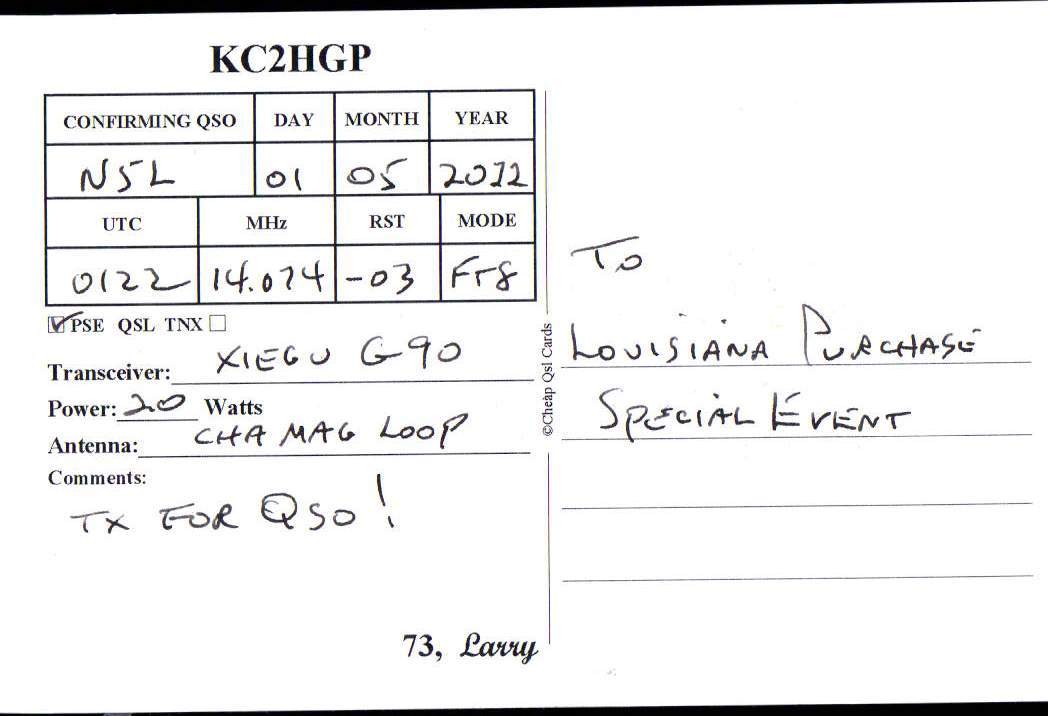 KC2HGP
CONFIRMING QSO DAY MONTH YEAR
N5L 01 05 2022
UTC MHz RST MODE
0122 14.074 -03 FT8
PSE QSL TNX
Transceiver: XIEGU G90
Power: 20 Watts
Antenna: CHA MAG LOOP
Comments:
TX FOR QSO!
73, Larry
©Cheap Qsl Cards
To
LOUISIANA PURCHASE
SPECIAL EVENT